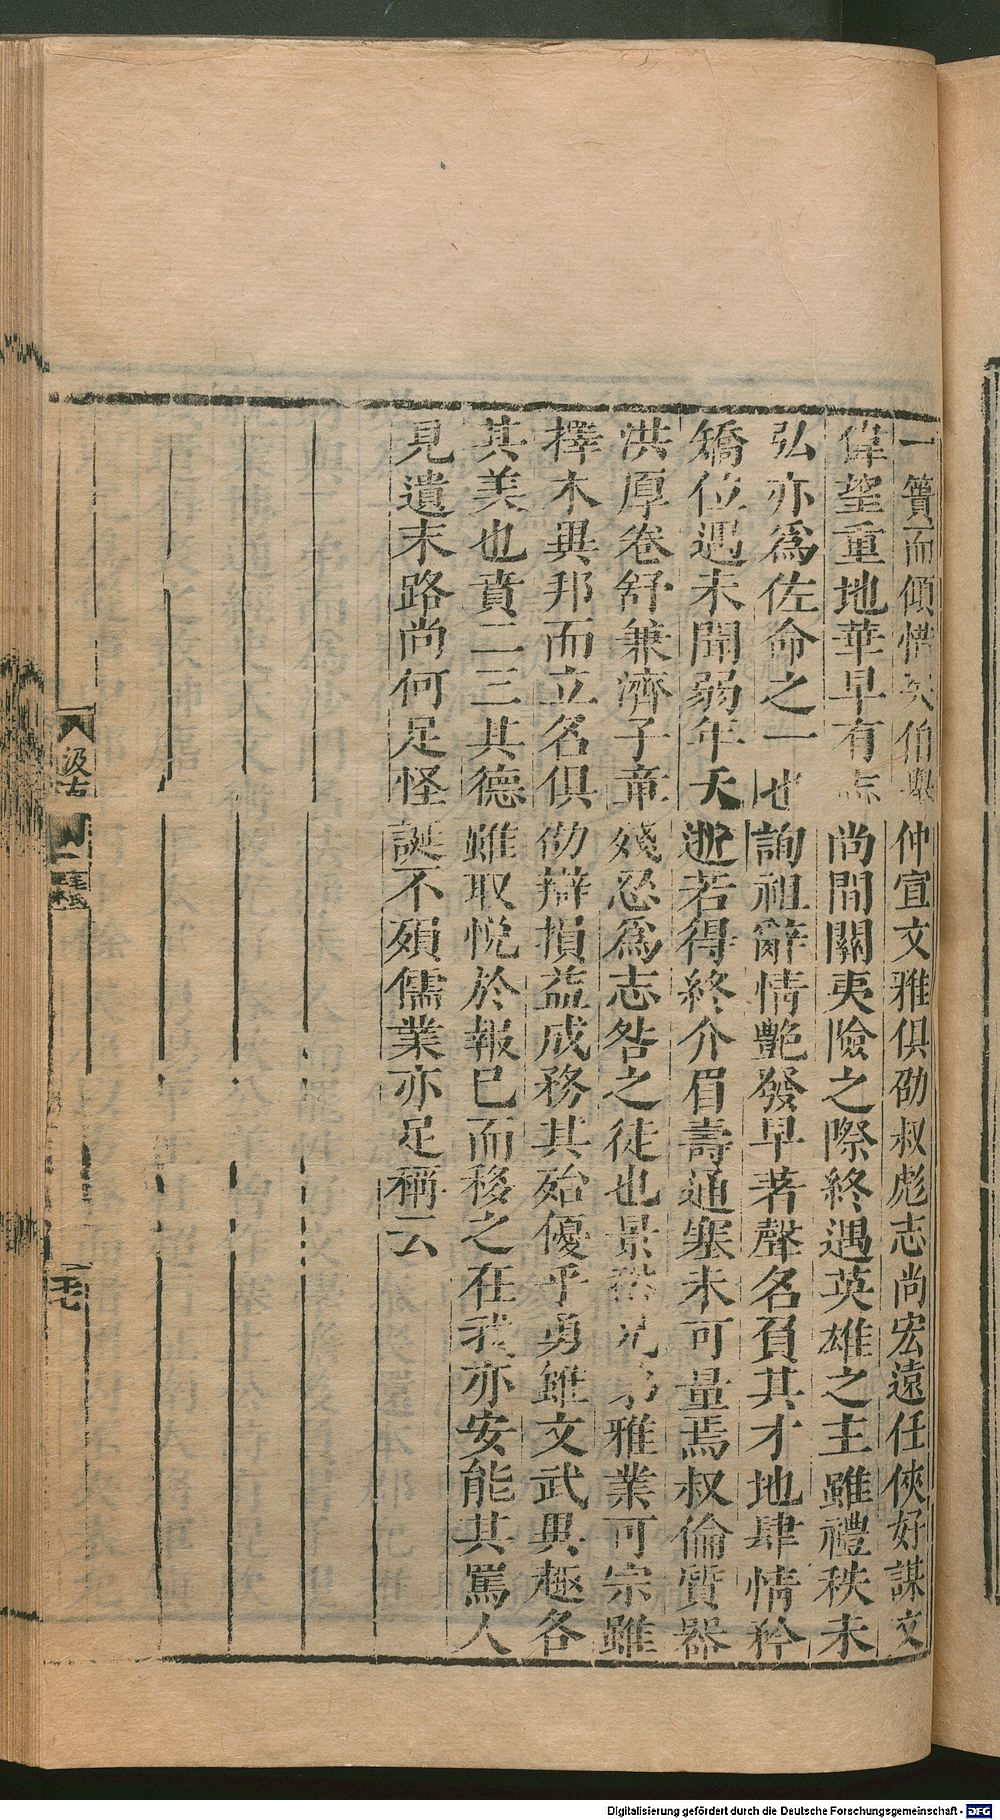 一簣而傾惜矣伯舉仲宣文雅俱劭叔彪志尚宏遠任俠好謀文
偉望重地華早有志尚間關夷險之際終遇英雄之主雖禮秩未
弘亦爲佐命之一也詢祖辭情艷發早著聲名負其才地肆情矜
矯位遇未聞弱年夭逝若得終介眉壽通塞未可量焉叔倫質器
洪厚卷舒兼濟子章殘忍爲志咎之徒也景裕兄弟雅業可宗雖
擇木異邦而立名俱劭辯損益成務其殆優乎勇雖文武異趣各
其美也賁二三其德雖取悅於報已而移之在我亦安能其罵人
見遺末路尚何足怪誕不殞儒業亦足稱云
汲古
二十七
Digitalisierung gefördert durch die Deutsche Forschungsgemeinschaft - DFG